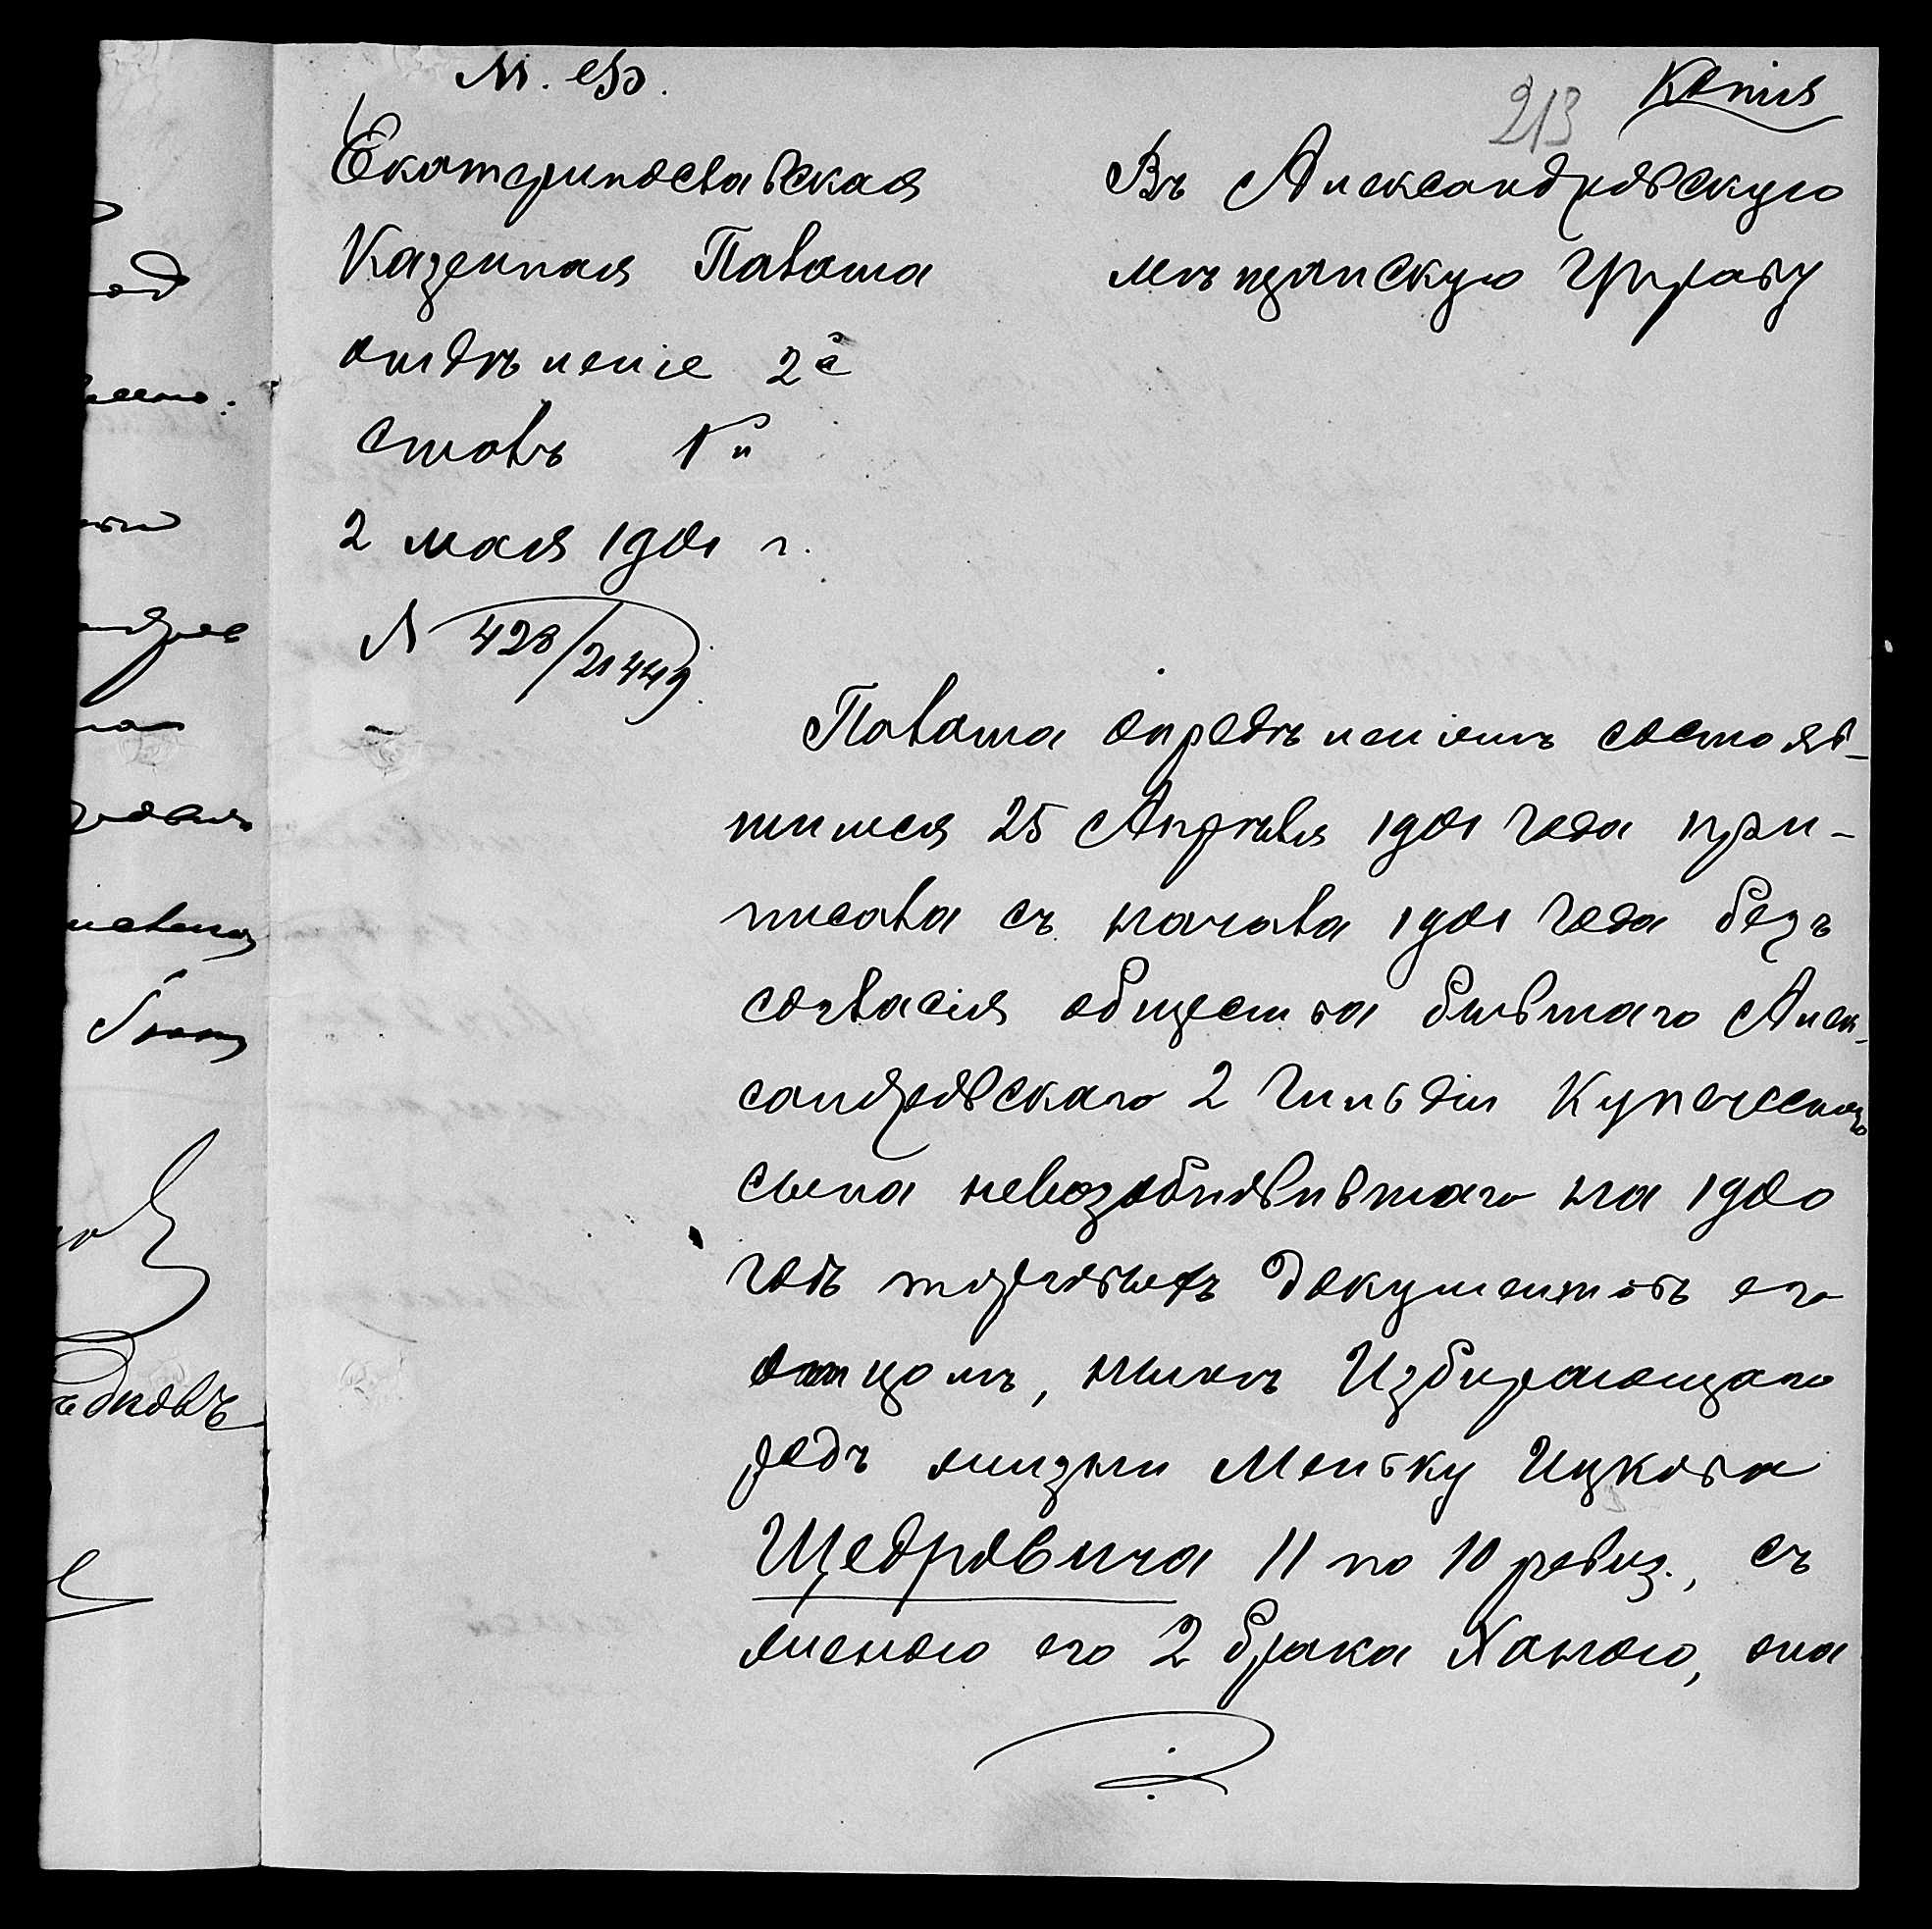 М. Ф.
213
Копия
Екатеринославская
Казенная Палата
отдѣленіе 2е
столъ 1й
2 мая 1901 г.
№ 428/21449.
Въ Александровскую
мѣщанскую Управу
Палата опредѣленіемъ состояв-
шимся 25 Апрѣля 1901 года при-
писала съ начала 1901 года безъ
согласія общества бывшаго Алек-
сандровскаго 2 гильдіи Купеческаго
сына невозобновившаго на 1900
годъ торговыхъ документовъ его
отцомъ, нынѣ Избирающаго
родъ жизни Меньку Ицкова
Щедровича 11 по 10 ревиз., съ
женою его 2 брака Ханою, она